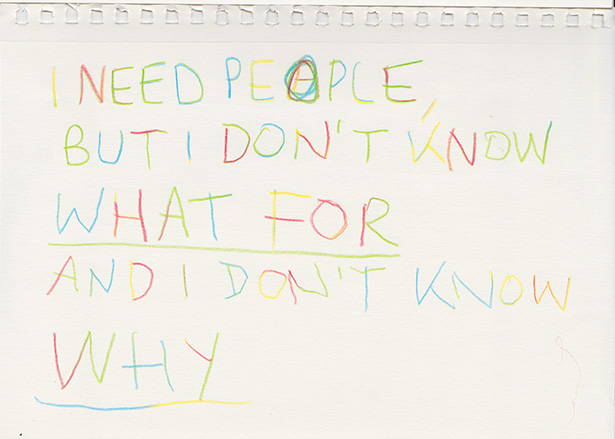 I NEED PEOPLE,
BUT I DON'T KNOW
WHAT FOR
AND I DON'T KNOW
WHY